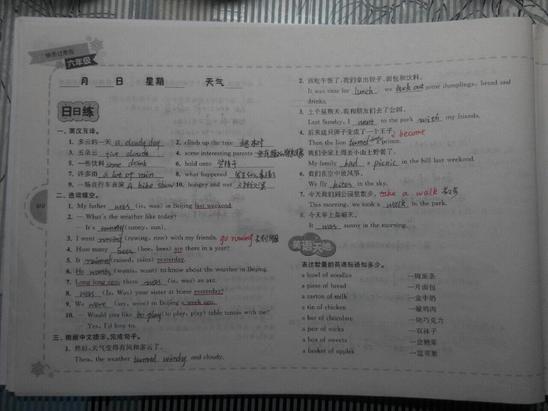 快乐过寒假
六年级
月 日 星期 天气
日日练
一、英汉互译。
1. 多云的一天 a cloudy day 2. climb up the tree
3. 五朵云 five clouds 4. some interesting parents
5. 一些饮料 some drink 6. hold onto
7. 许多雨 a lot of rain 8. what happened
9. 一场自行车表演 A bike show 10. hungry and wet
二、选词填空。
1. My father was (is, was) in Beijing last weekend.
2. — What's the weather like today?
— It's sunny (sunny, sun).
3. I went rowing (rowing, row) with my friends. go rowing
4. How many (hee, bees) are there in a year?
5. It rained (rained, rains) yesterday.
6. He wants (wants, want) to know about the weather in Beijing.
7. Long long ago, there was (is, was) an ant.
8. Was (Is, Was) your sister at home yesterday?
9. We were (are, were) in Beijing a week ago.
10. — Would you like to play (to play, play) table tennis with me?
— Yes, I'd love to.
三、根据中文提示，完成句子。
1. 然后，天气变得有风和多云了。
Then, the weather turned windy and cloudy.
2. 该吃午饭了，我们拿出饺子、面包和饮料。
It was time for lunch. We took out some dumplings, bread and
drinks.
3. 上个星期天，我和朋友们去了公园。
Last Sunday, I went to the park with my friends.
4. 后来这只狮子变成了一个王子。 become
Then the lion turned into a prince.
5. 我们全家上周去小山上野餐了。
My family had a picnic in the hill last weekend.
6. 我们在空中放风筝。
We fly kites in the sky.
7. 今天我们到公园里散步。 take a walk 散步
This morning, we took a walk in the park.
8. 今天早上是晴天。
It was sunny in the morning.
英语天地
表达数量的英语短语知多少。
a bowl of noodles 一碗面条
a piece of bread 一片面包
a carton of milk 一盒牛奶
a tin of chicken 一罐鸡肉
a bar of chocolate 一块巧克力
a pair of socks 一双袜子
a box of sweets 一盒糖果
a basket of apples 一篮苹果